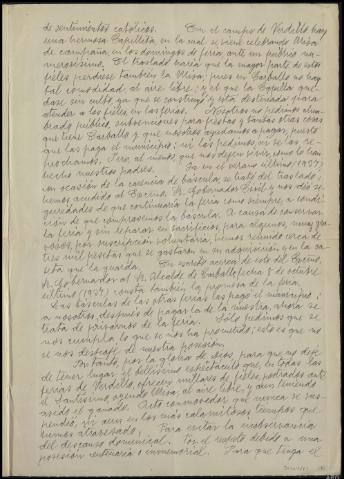 de sentimientos católicos. En el campo de Verdillo hay
una hermosa Capillita, en la cual se viene celebrando Misa
de campaña, en los domingos de feria, ante un público nu-
merosísimo. El traslado haría que la mayor parte de estos
fieles perdiese también la Misa; pues en Carballo no hay
tal comodidad, al aire libre; y el que la Capilla que-
dase sin culto, ya que se construyó y está destinada para
atender a los fieles en las ferias. Nosotros no pedimos alum-
brado público, subvenciones para fiestas y tantas otras cosas
que tiene Carballo y que nosotros ayudamos a pagar, puesto
que las paga el municipio; ni las pedimos, ni se las re-
prochamos. Pero, al menos, que nos dejen vivir, como lo han
hecho nuestros padres. Ya en el verano último (1957),
en ocasión de la carencia de báscula, se trató del traslado;
hemos acudido al Excmo. Sr. Gobernador Civil y nos dió se-
guridades de que continuaría la feria como siempre, a condi-
ción de que comprásemos la báscula. A causa de conservar
la feria y sin reparar en sacrificios, para algunos, muy gra-
vosos, por suscripción voluntaria, hemos reunido cerca de
tres mil pesetas que se gastaron en su adquisición y en la ca-
seta que la guarda. En escrito acerca de esto del Excmo.
Sr. Gobernador al Sr. Alcalde de Carballo, fecha 5 de octubre
último (1957) consta también la promesa de la feria.
Las básculas de las otras ferias las pagó el municipio;
a nosotros, después de pagarla de la nuestra, ahora se
trata de privarnos de la feria. Sólo pedimos que se
nos cumpla, lo que se nos ha prometido; esto es que no
se nos despoje de nuestra posesión.
Por tanto, para gloria de Dios, para que no deje
de tener lugar el bellísimo espectáculo que, en todas las
ferias de Verdillo, ofrecen millares de fieles, postrados ante
el Santísimo, oyendo Misa, al aire libre, y aun teniendo
asido el ganado. Acto conmovedor que nunca se sus-
pendió, ni aun en los más calamitosos tiempos que
hemos atravesado. Para evitar la inobservancia
del descanso dominical. Por el respeto debido a una
posesión centenaria e inmemorial. Para que tenga el